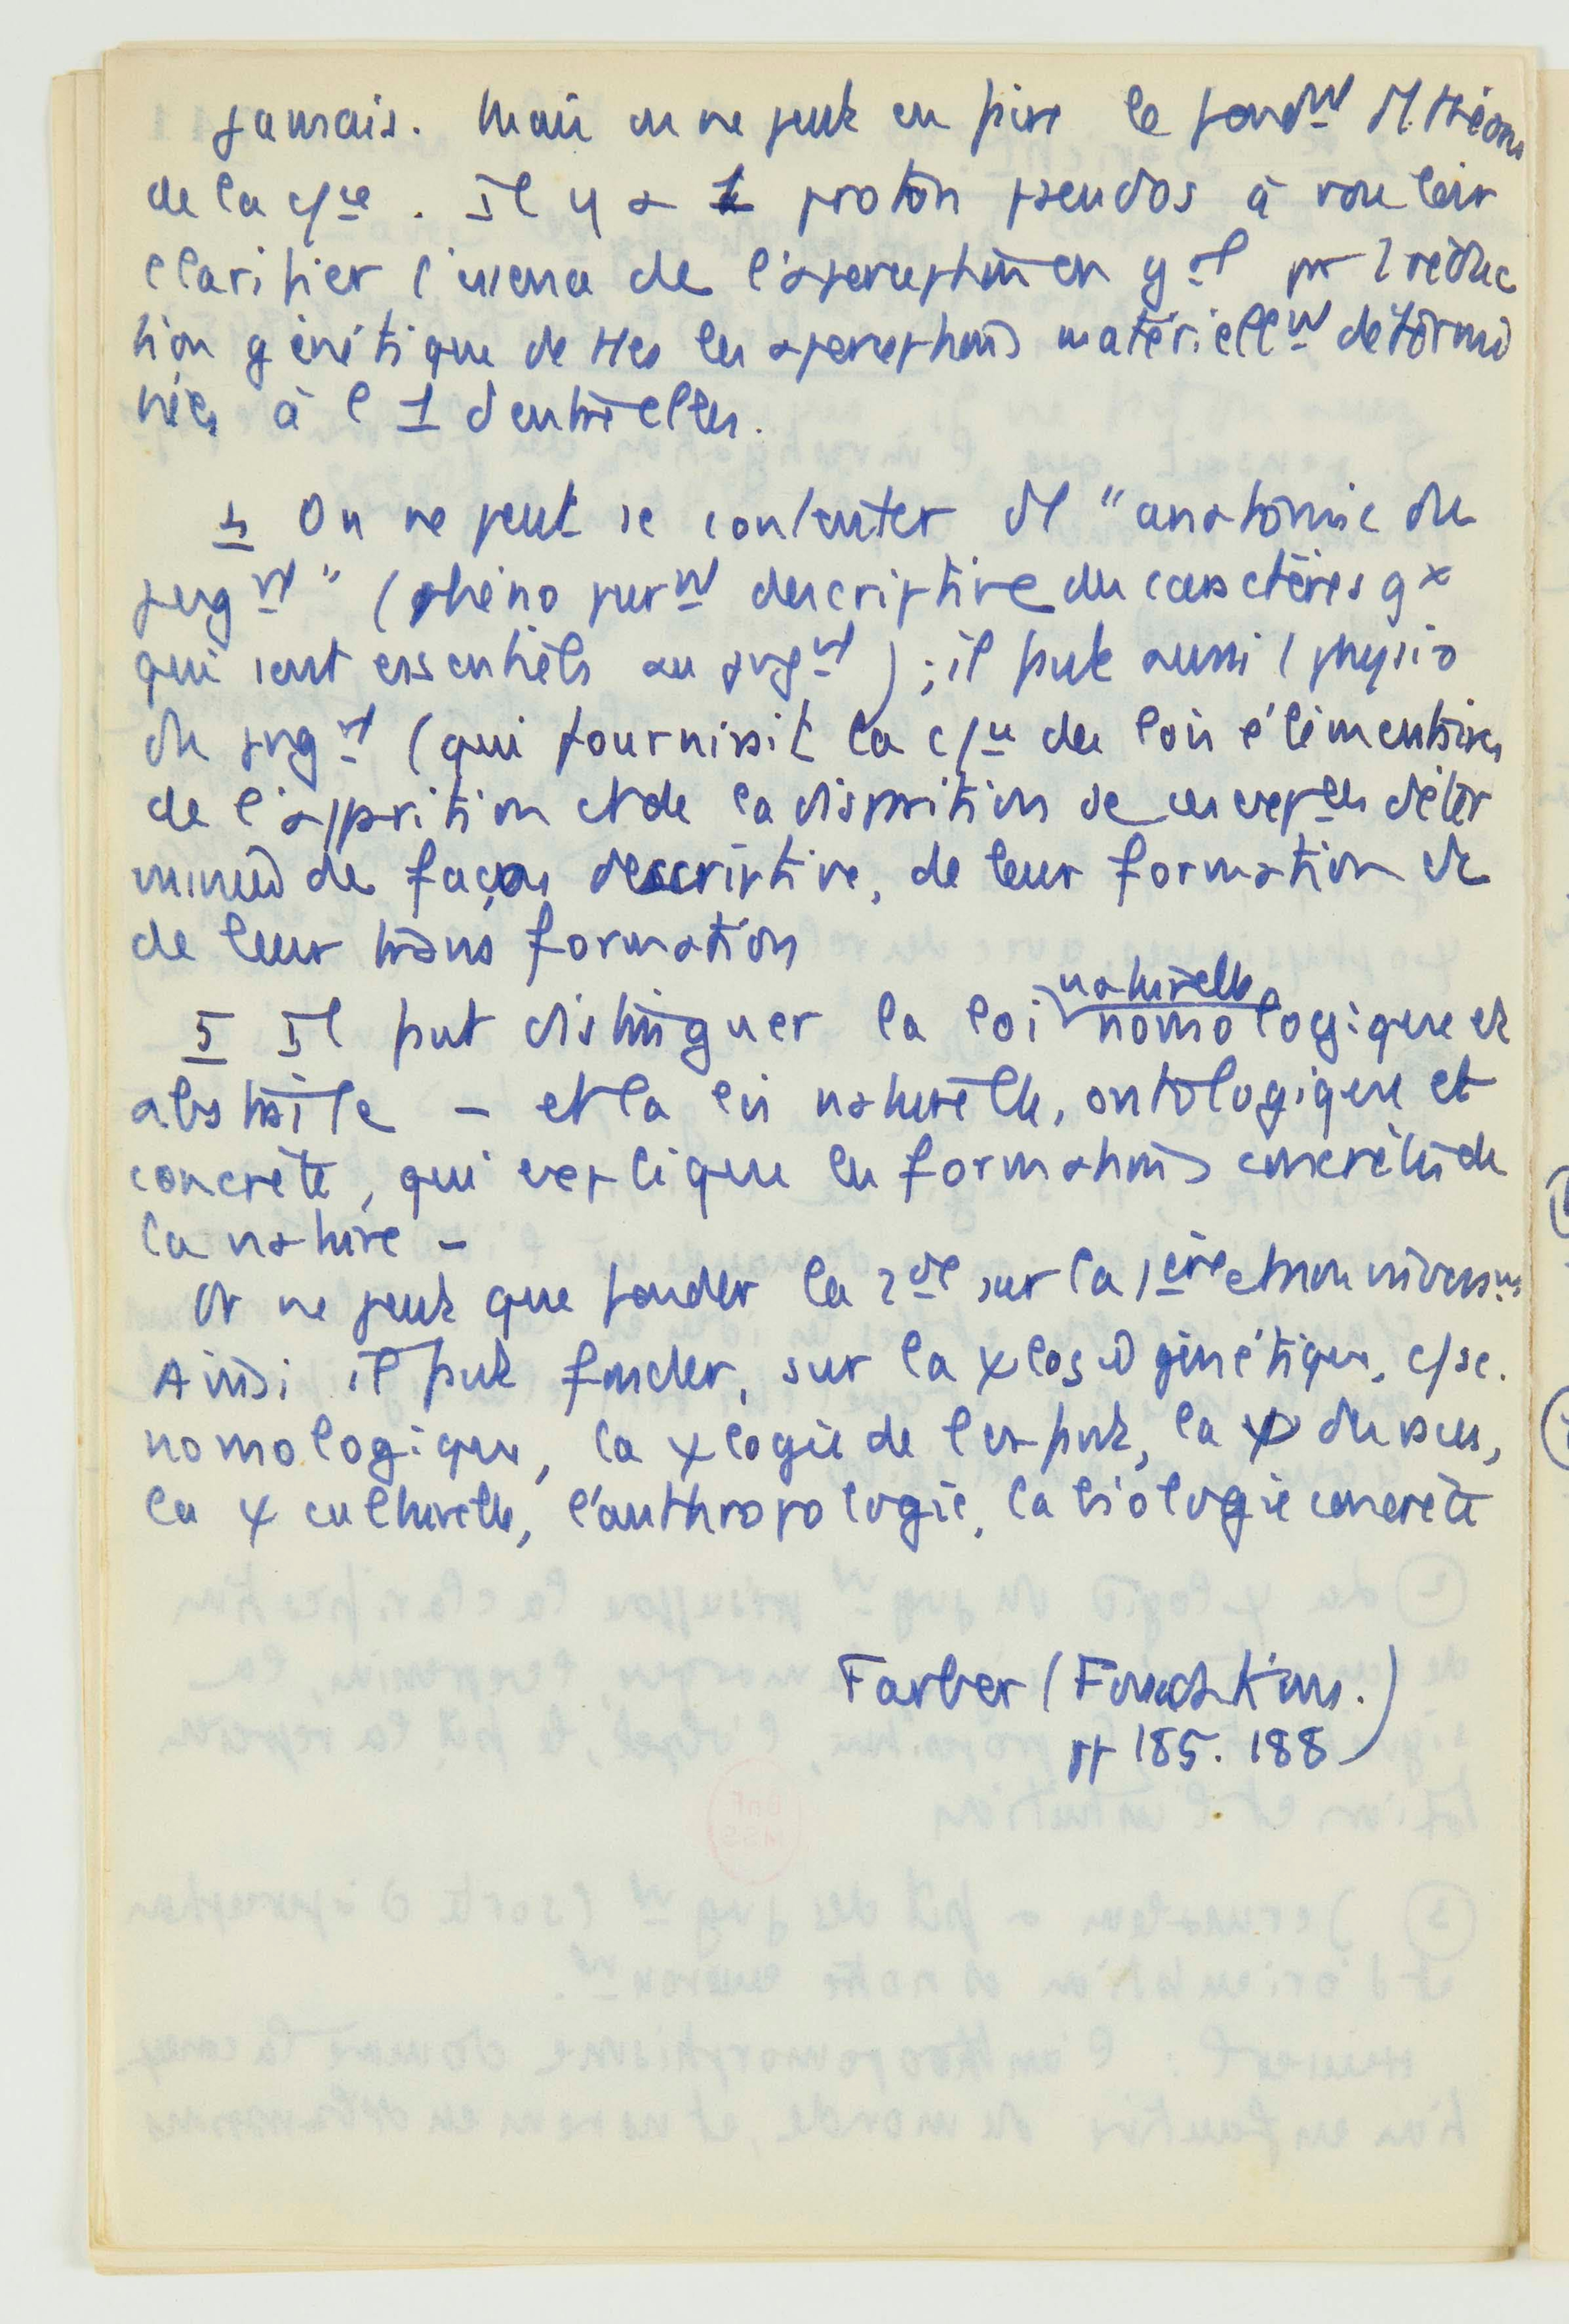 jamais. Mais on ne peut en faire le fondmt d'1 théorie
de la c/ce. Il y a 1 proton pseudos à vouloir
clarifier l'essence de l'aperception en gal par 1 réduc
tion génétique de ttes les aperceptions matériellemt détermi
nées à l'1 d'entre elles.
4 On ne peut se contenter d'1 "anatomie du
jugmt" (phéno purmt descriptive des caractères gx
qui sont essentiels au jugmt) ; il faut aussi 1 physio
du jugmt (qui fournirait la c/ce des lois élémentaires
de l'apparition et de la disparition de ces deter
minées de façon descriptive, de leur formation et
de leur transformation
5 Il faut distinguer la loi naturelle nomologique et
abstraite - et la loi naturelle, ontologique et
concrète, qui explique les formations concrètes de
la nature -
Or ne peut que fonder la 2de sur la 1ère et non
Ainsi il faut fonder, sur la génétique, c/se.
nomologique, la ψlogie de l'enfant, la ψ des races,
la ψ culturelle, l'anthropologie, la biologie concrète
Farber (Foundations.)
pp 185. 188